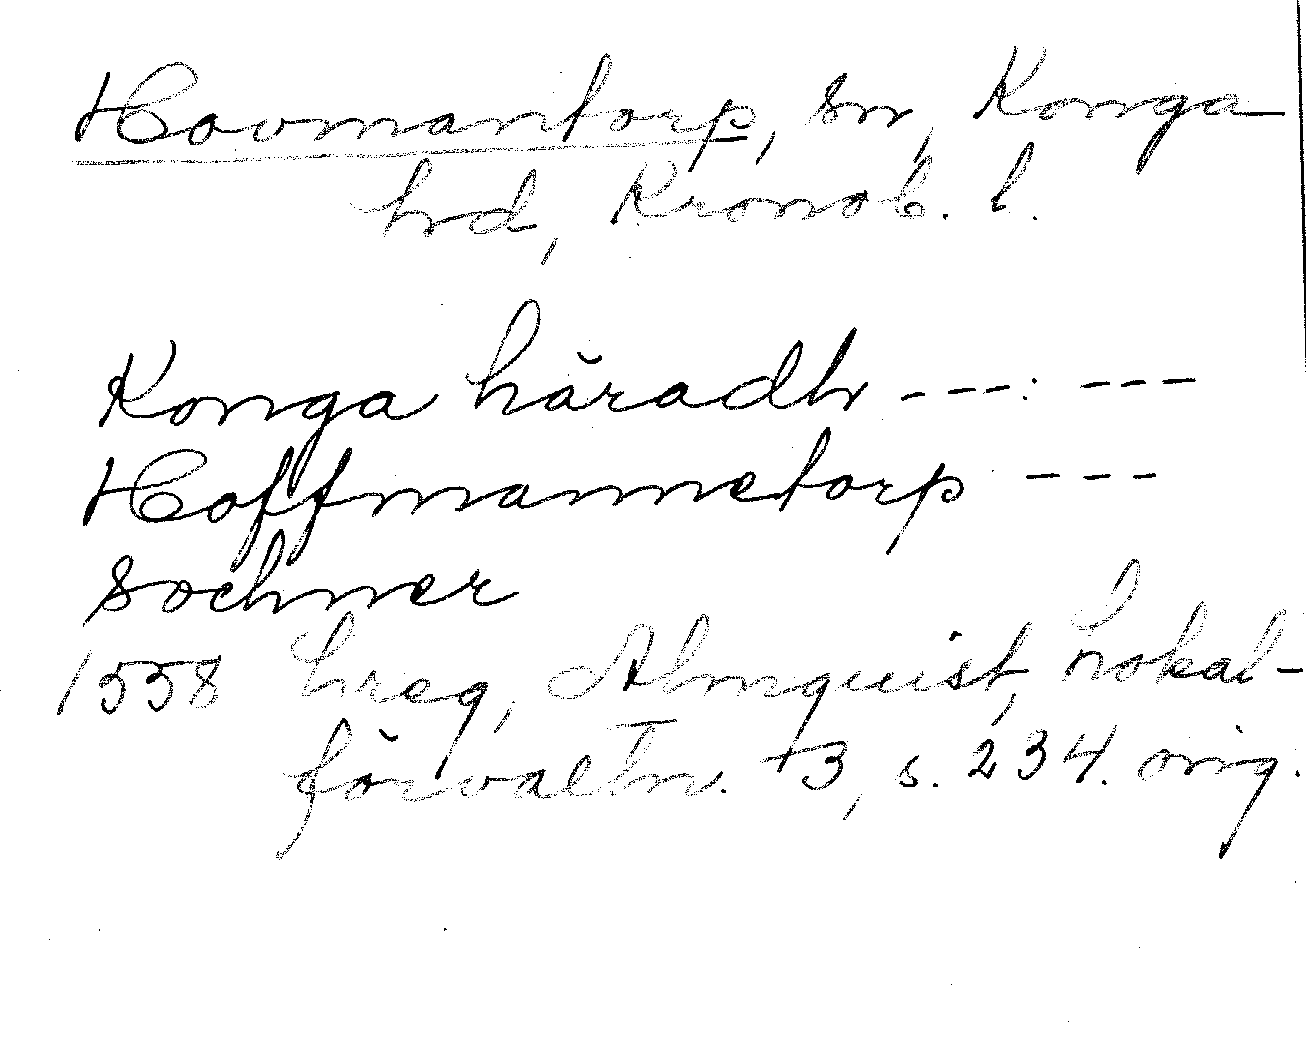 Hovmantorp, sn, Konga
hd, Kronob. l.
Konga häradh ---: ---
Hoffmannetorp ---
sochner
1558 hreg, Almquist, Lokal-
förvaltn. +3, s. 234. orig.